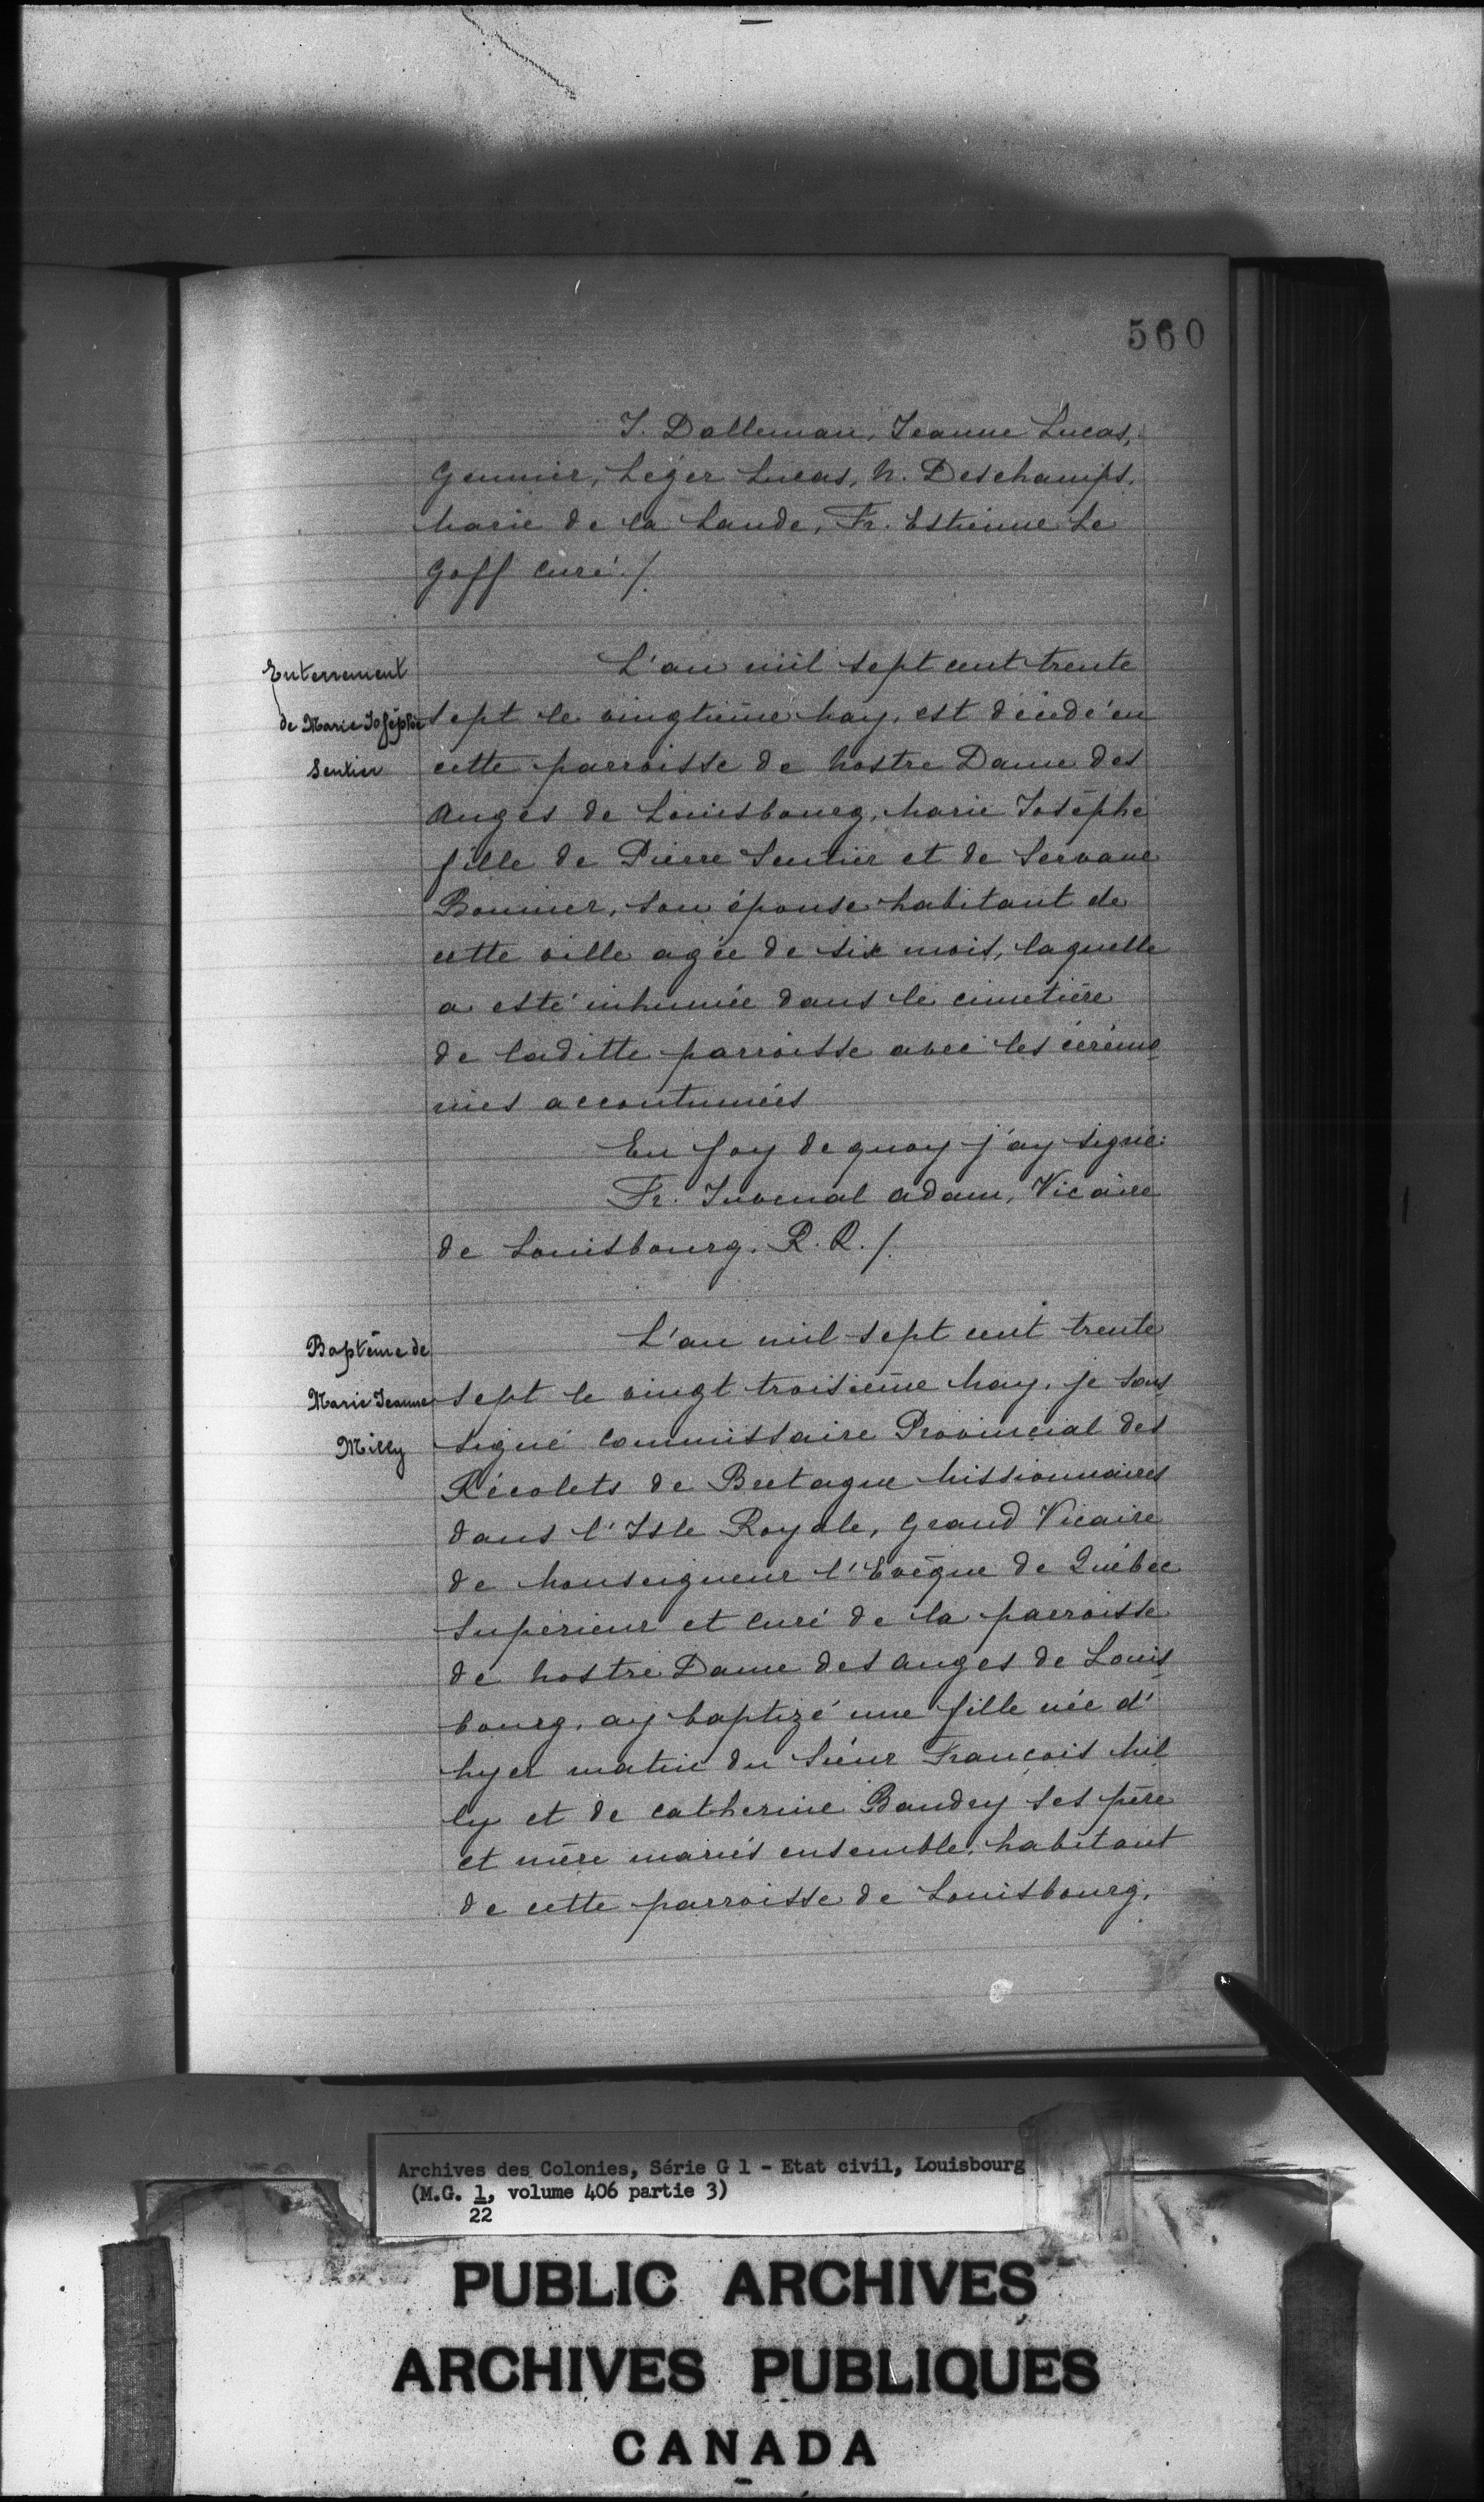 560
J. Dalleman, Jeanne Lucas,
Gennier, Léger Lucas, N. Deschamps,
Marie de la Lande, Fr. Estienne Le
Goff curé./.
Enterrement
de Marie Joséphe
Sentier
L'an mil sept cent trente
sept le vingtième May, est décédé en
cette parroisse de Nostre Dame des
Anges de Louisbourg, Marie Joséphe
fille de Pierre Sentier et de Servane
Bonnier, son épouse habitant de
cette ville agée de six mois, laquelle
a esté inhumée dans le cimetière
de laditte parroisse avec les cérémo-
nies accoutumées
En foy de quoy j'ay signé:
Fr. Juvenal Adam, Vicaire
de Louisbourg. R. R./.
Baptême de
Marie Jeanne
Milly
L'an mil sept cent trente
sept le vingt troisième May, je sous
signé Commissaire Provincial des
Récolets de Bretagne Missionnaires
dans l'Isle Royale, Grand Vicaire
de Monseigneur l'Evêque de Québec
Supérieur et Curé de la parroisse
de Nostre Dame des Anges de Louis-
bourg, ay baptizé une fille née d'
hyer matin du Sieur François Mil
ly et de Catherine Baudry ses père
et mère mariés ensemble, habitant
de cette parroisse de Louisbourg,
Archives des Colonies, Série G 1 - Etat civil, Louisbourg
(M.G. 1, volume 406 partie 3)
22
PUBLIC ARCHIVES
ARCHIVES PUBLIQUES
CANADA